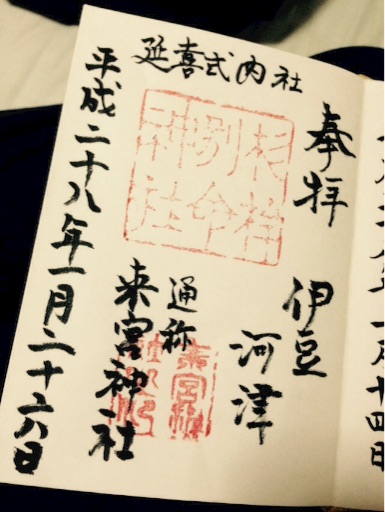 延喜式内社
奉拝
伊豆
河津
杉桙
別命
神社
通称
来宮神社
平成二十八年一月二十六日
十四日